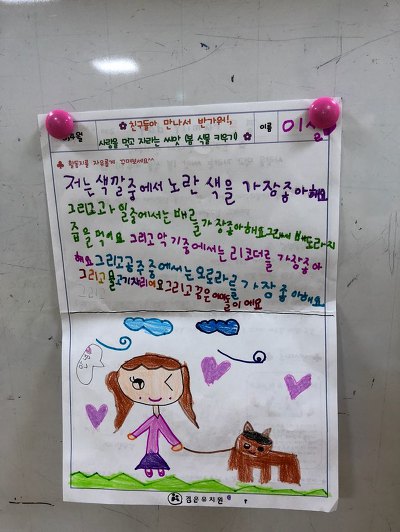 친구들아 만나서 반가워!,
사랑을 먹고 자라는 씨앗 (봄 식물 키우기)
이름 이
활동지를 자유롭게 꾸며보세요^^
저는 색깔중에서 노란 색을 가장좋아해요
그리고과일중에서는배를가장좋아해요그래서배도라지
즙을먹어요 그리고악기중에서는리코더를 가장좋아
해요그리고공주중에서는오로라를가장좋아해요
그리고물고기자리에요그리고꿈은
그리
유치원